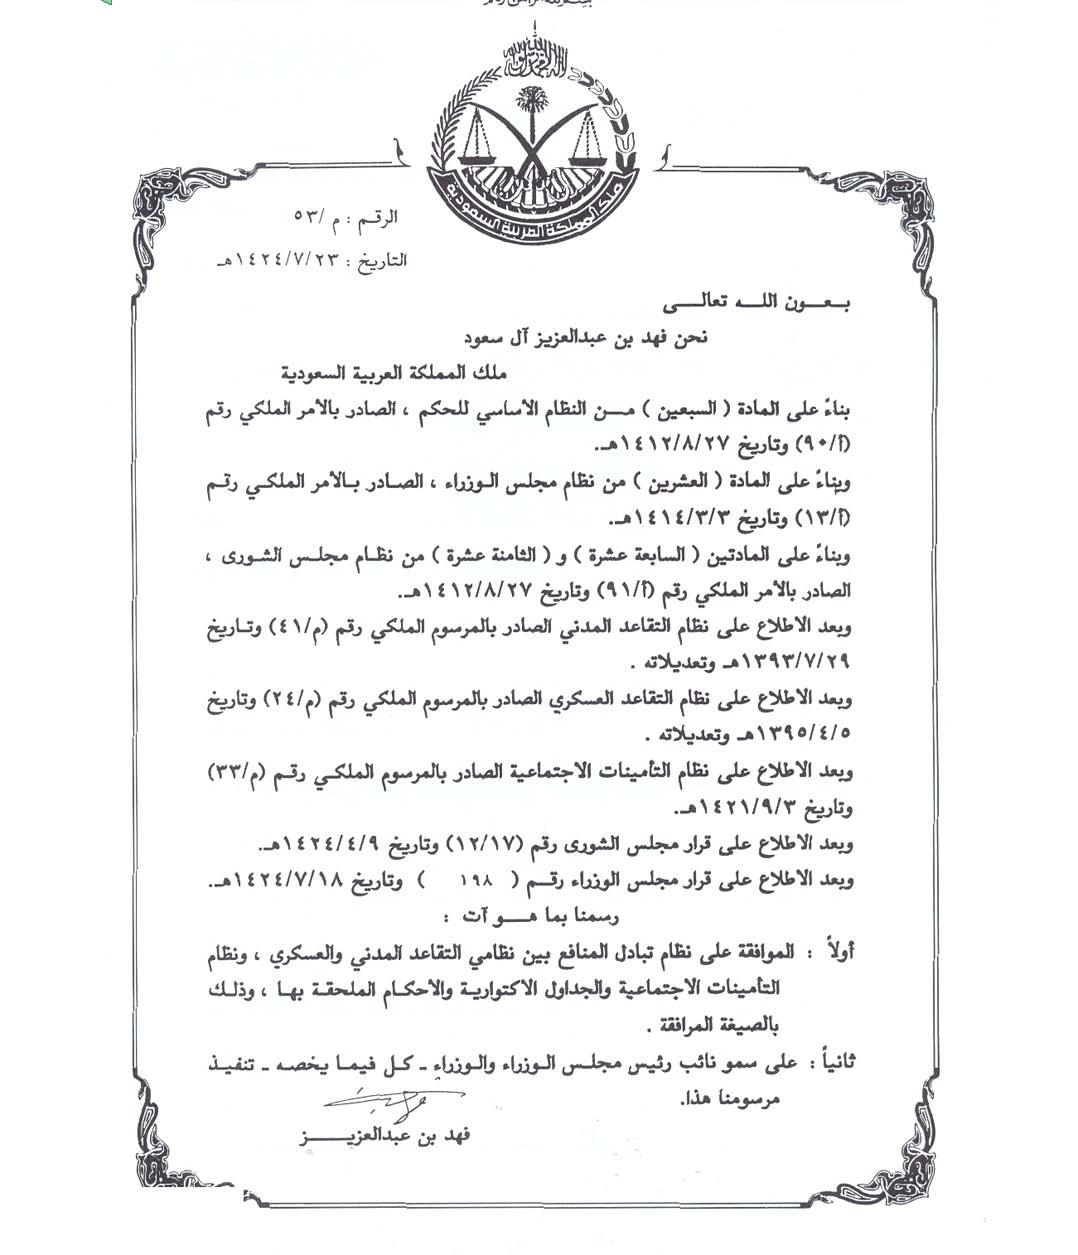 ملك المملكة العربية السعودية
الرقم : م /٥٣
التاريخ : ١٤٢٤/٧/٢٣هـ
بعون الله تعالى
نحن فهد بن عبدالعزيز آل سعود
ملك المملكة العربية السعودية
بناءً على المادة ( السبعين ) من النظام الأساسي للحكم ، الصادر بالأمر الملكي رقم
(أ/٩٠) وتاريخ ١٤١٢/٨/٢٧هـ.
وبناءً على المادة ( العشرين ) من نظام مجلس الوزراء ، الصادر بالأمر الملكي رقم
(أ/١٣) وتاريخ ١٤١٤/٣/٣هـ.
وبناءً على المادتين ( السابعة عشرة ) و ( الثامنة عشرة ) من نظام مجلس الشورى ،
الصادر بالأمر الملكي رقم (أ/٩١) وتاريخ ١٤١٢/٨/٢٧هـ.
وبعد الاطلاع على نظام التقاعد المدني الصادر بالمرسوم الملكي رقم (م/٤١) وتاريخ
١٣٩٣/٧/٢٩هـ وتعديلاته .
وبعد الاطلاع على نظام التقاعد العسكري الصادر بالمرسوم الملكي رقم (م/٢٤) وتاريخ
١٣٩٥/٤/٥هـ وتعديلاته .
وبعد الاطلاع على نظام التأمينات الاجتماعية الصادر بالمرسوم الملكي رقم (م/٣٣)
وتاريخ ١٤٢١/٩/٣هـ.
وبعد الاطلاع على قرار مجلس الشورى رقم (١٢/١٧) وتاريخ ١٤٢٤/٤/٩هـ.
وبعد الاطلاع على قرار مجلس الوزراء رقم ( ١٩٨ ) وتاريخ ١٤٢٤/٧/١٨هـ.
رسمنا بما هو آت :
أولاً : الموافقة على نظام تبادل المنافع بين نظامي التقاعد المدني والعسكري ، ونظام
التأمينات الاجتماعية والجداول الاكتوارية والأحكام الملحقة بها ، وذلك
بالصيغة المرافقة .
ثانياً : على سمو نائب رئيس مجلس الوزراء والوزراء ـ كل فيما يخصه ـ تنفيذ
مرسومنا هذا.
فهد بن عبدالعزيز